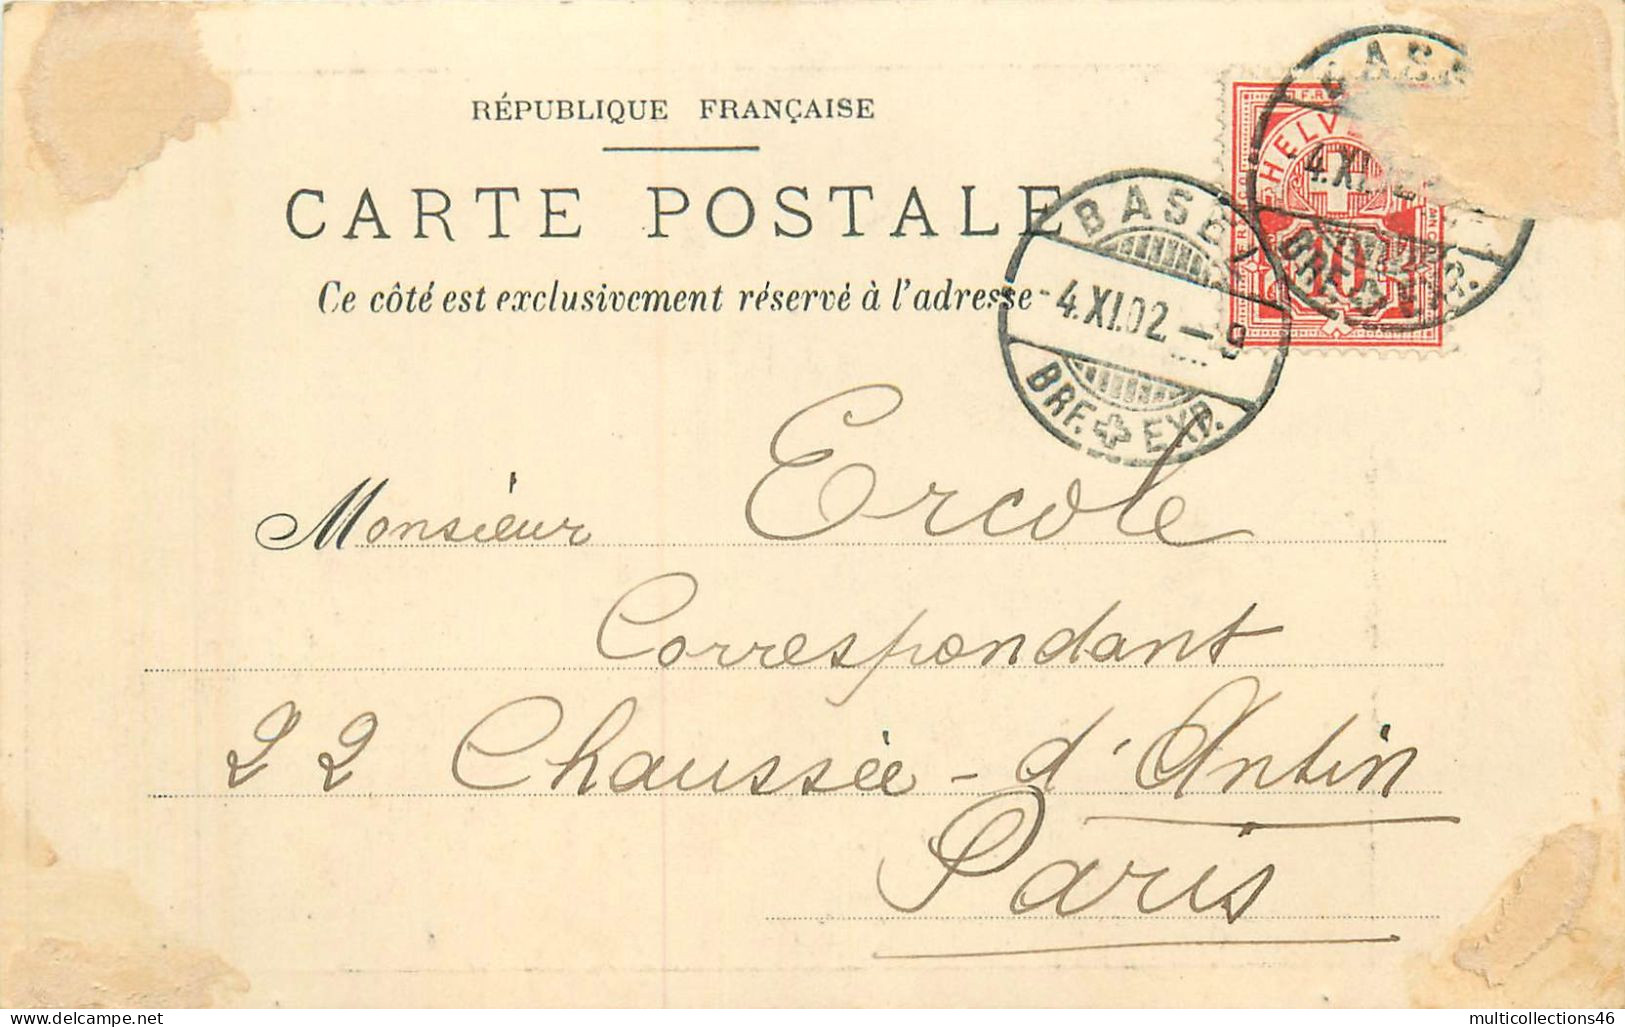 RÉPUBLIQUE FRANÇAISE
CARTE POSTALE
Ce côté est exclusivement réservé à l'adresse
HELV
10
4.XI.02
BRF. EXP.
BASEL
-4.XI.02.—9
BRF. EXP.
Monsieur Ercole
Correspondant
22 Chaussée-d'Antin
Paris
delcampe.net
multicollections46